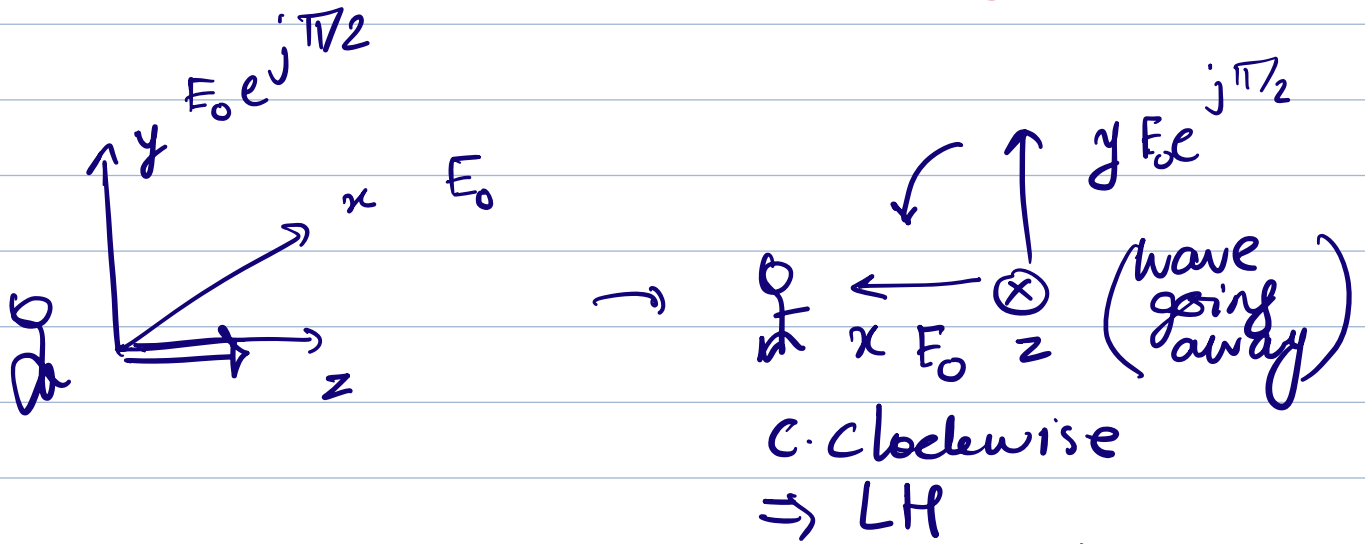 y E₀ e^{jπ/2}
x E₀
z
→
y E₀ e^{jπ/2}
x E₀ z
(wave
going
away)
C. Clockwise
⇒ LH